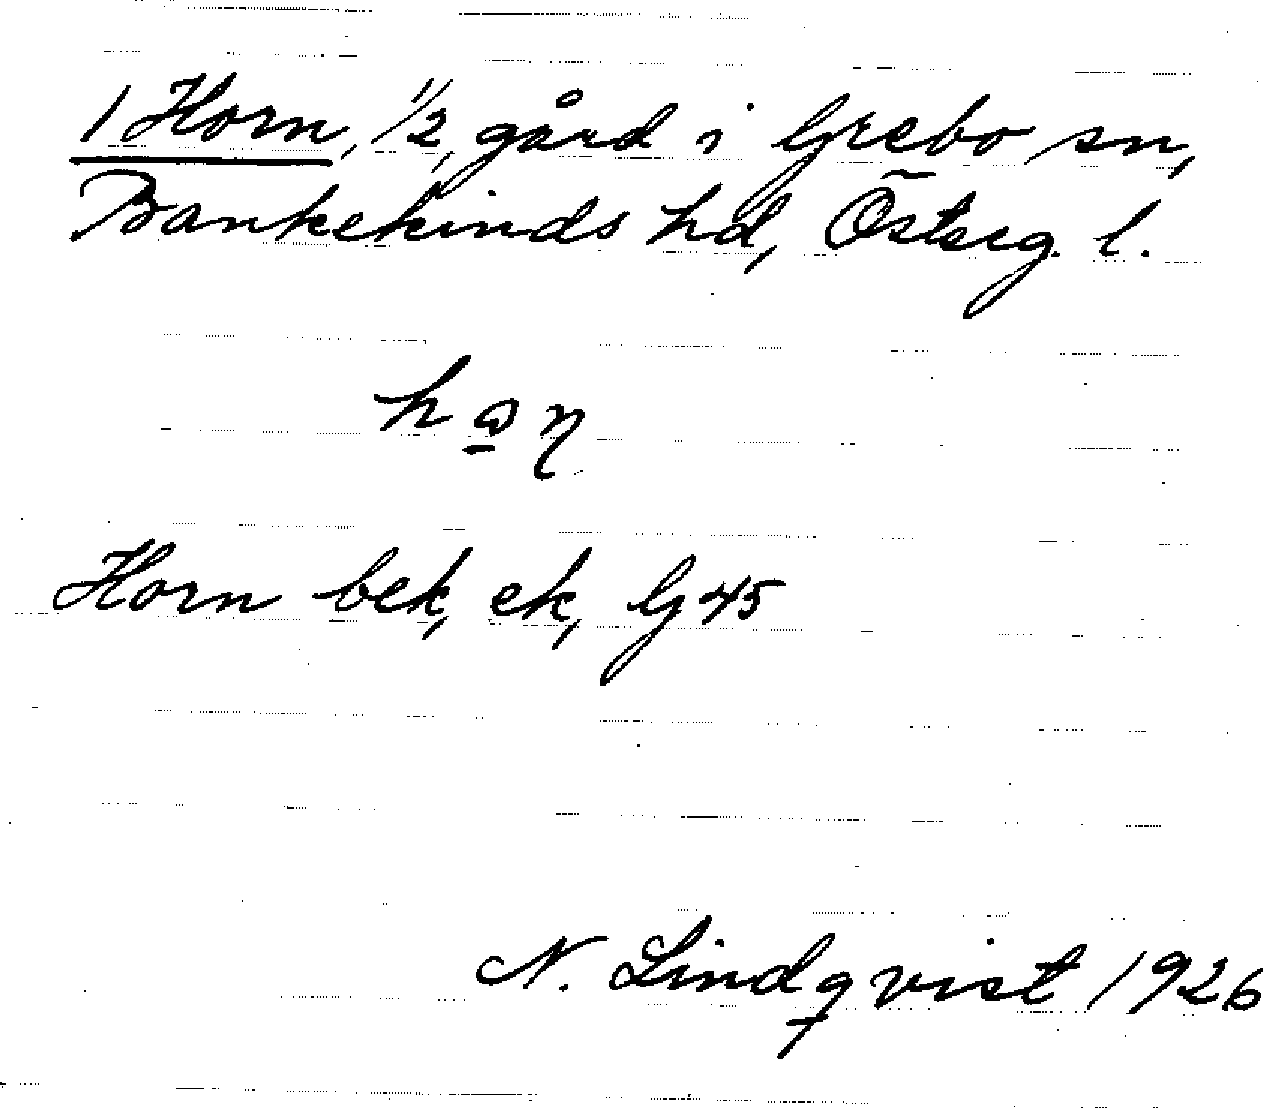 1 Horn, 1/2 gård i Grebo sn,
Bankekinds hd, Österg. l.
Horn bek, ek, G 45
N. Lindqvist 1926